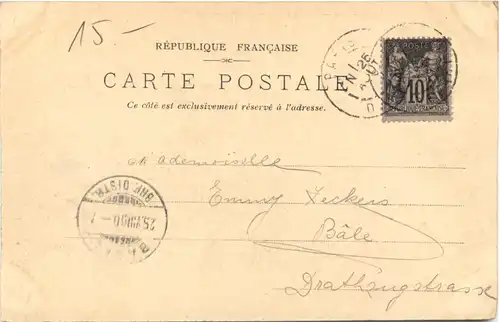 15-
RÉPUBLIQUE FRANÇAISE
CARTE POSTALE
Ce côté est exclusivement réservé à l'adresse.
POSTE
10
Mademoiselle
Emmy Jeckers
Bâle
Drathzugstrasse
BRF. DISTR.